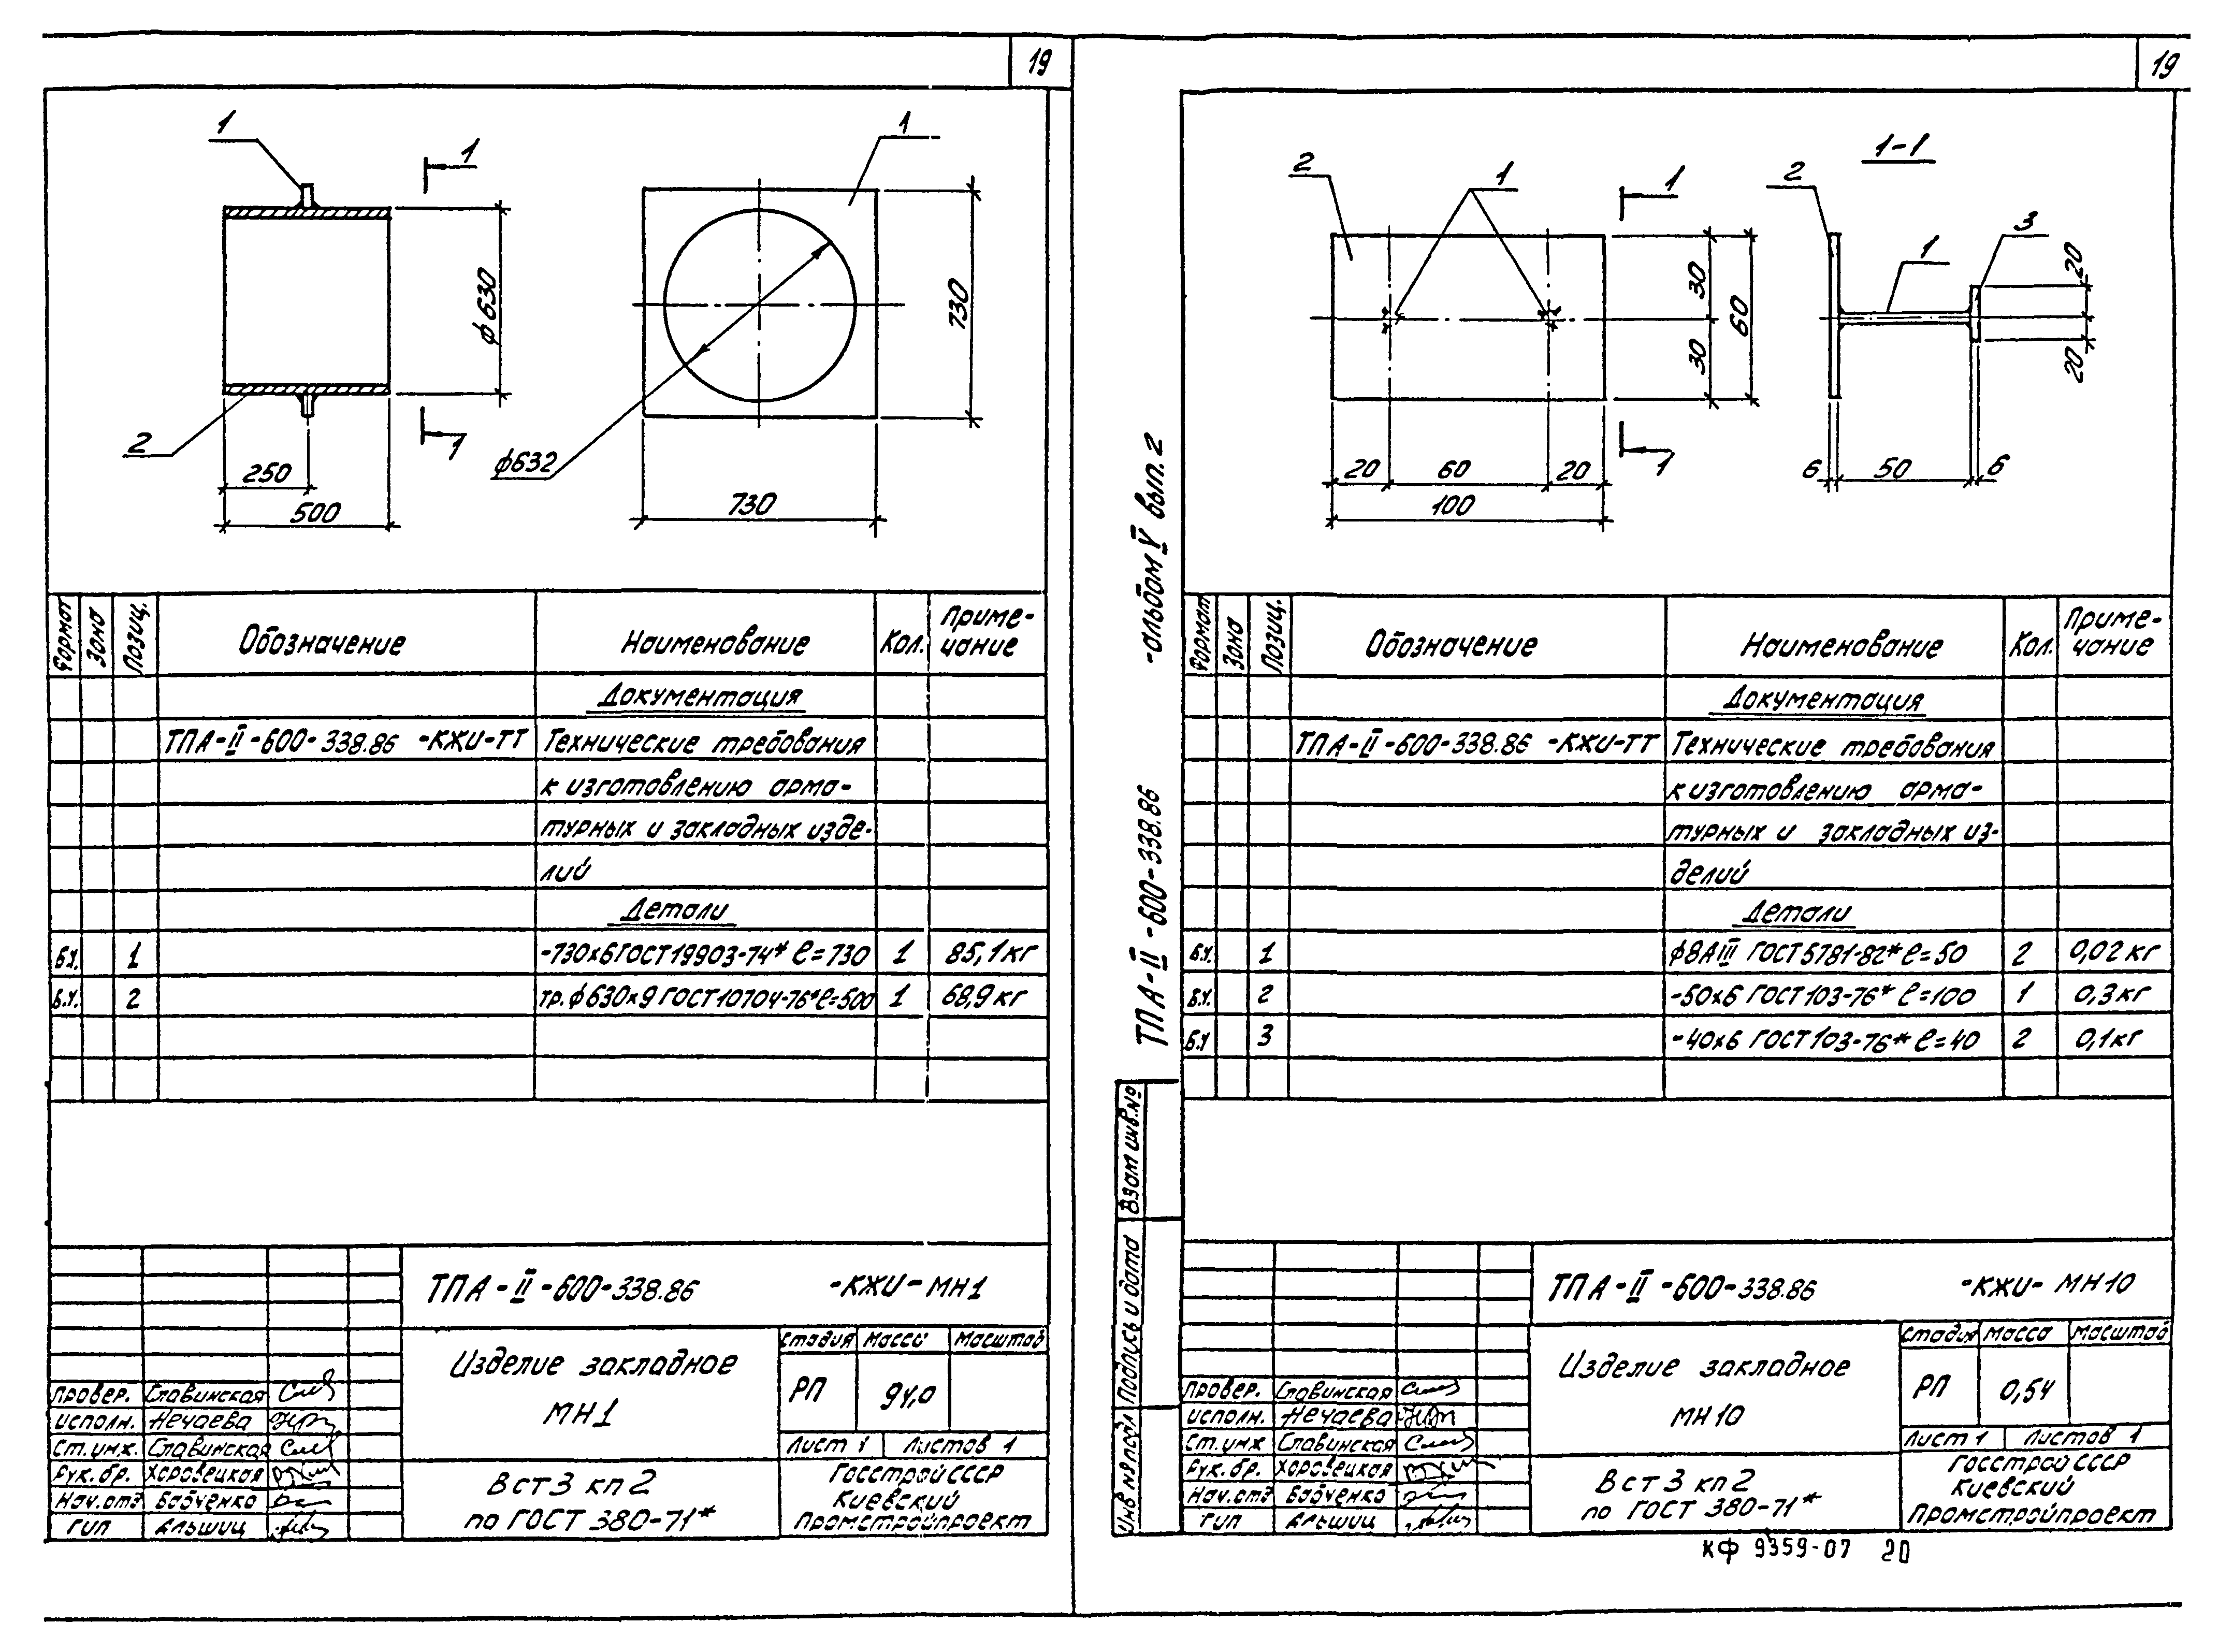 19
1
1
1
2
1
ϕ630
730
ϕ632
250
500
730
Формат
Зона
Позиц.
Обозначение
Наименование
Кол.
Приме-
чание
Документация
ТПА-II-600-338.86 -КЖИ-ТТ Технические требования
к изготовлению арма-
турных и закладных изде-
лий
Детали
Б.Ч. 1 -730х6 ГОСТ 19903-74* ℓ=730 1 85,1кг
Б.Ч. 2 тр. ϕ630х9 ГОСТ 10704-76* ℓ=500 1 68,9кг
ТПА-II-600-338.86 -КЖИ-МН1
Изделие закладное
МН1
стадия масса масштаб
РП 94,0
Лист 1 Листов 1
ВСт3 кп2
по ГОСТ 380-71*
Госстрой СССР
Киевский
Промстройпроект
провер. Славинская
исполн. Нечаева
ст.инж. Славинская
рук.бр. Хоровецкая
Нач.отд Бабченко
ГИП Альшиц
19
ТПА-II-600-338.86 -альбом V вып.2
2
1
1
1
1-1
2
1
3
30
30
60
20
20
20 60 20
100
6 50 6
Формат
Зона
Позиц.
Обозначение
Наименование
Кол.
Приме-
чание
Документация
ТПА-II-600-338.86 -КЖИ-ТТ Технические требования
к изготовлению арма-
турных и закладных из-
делий
Детали
Б.Ч. 1 ϕ8АIII ГОСТ 5781-82* ℓ=50 2 0,02кг
Б.Ч. 2 -50х6 ГОСТ 103-76* ℓ=100 1 0,3кг
Б.Ч 3 -40х6 ГОСТ 103-76* ℓ=40 2 0,1кг
Взам инв.№
Подпись и дата
Инв № подл
ТПА-II-600-338.86 -КЖИ-МН10
Изделие закладное
МН10
стадия масса масштаб
РП 0,54
Лист 1 Листов 1
ВСт3 кп2
по ГОСТ 380-71*
Госстрой СССР
Киевский
Промстройпроект
провер. Славинская
исполн. Нечаева
ст.инж Славинская
рук.бр. Хоровецкая
Нач.отд Бабченко
ГИП Альшиц
КФ 9359-07 20